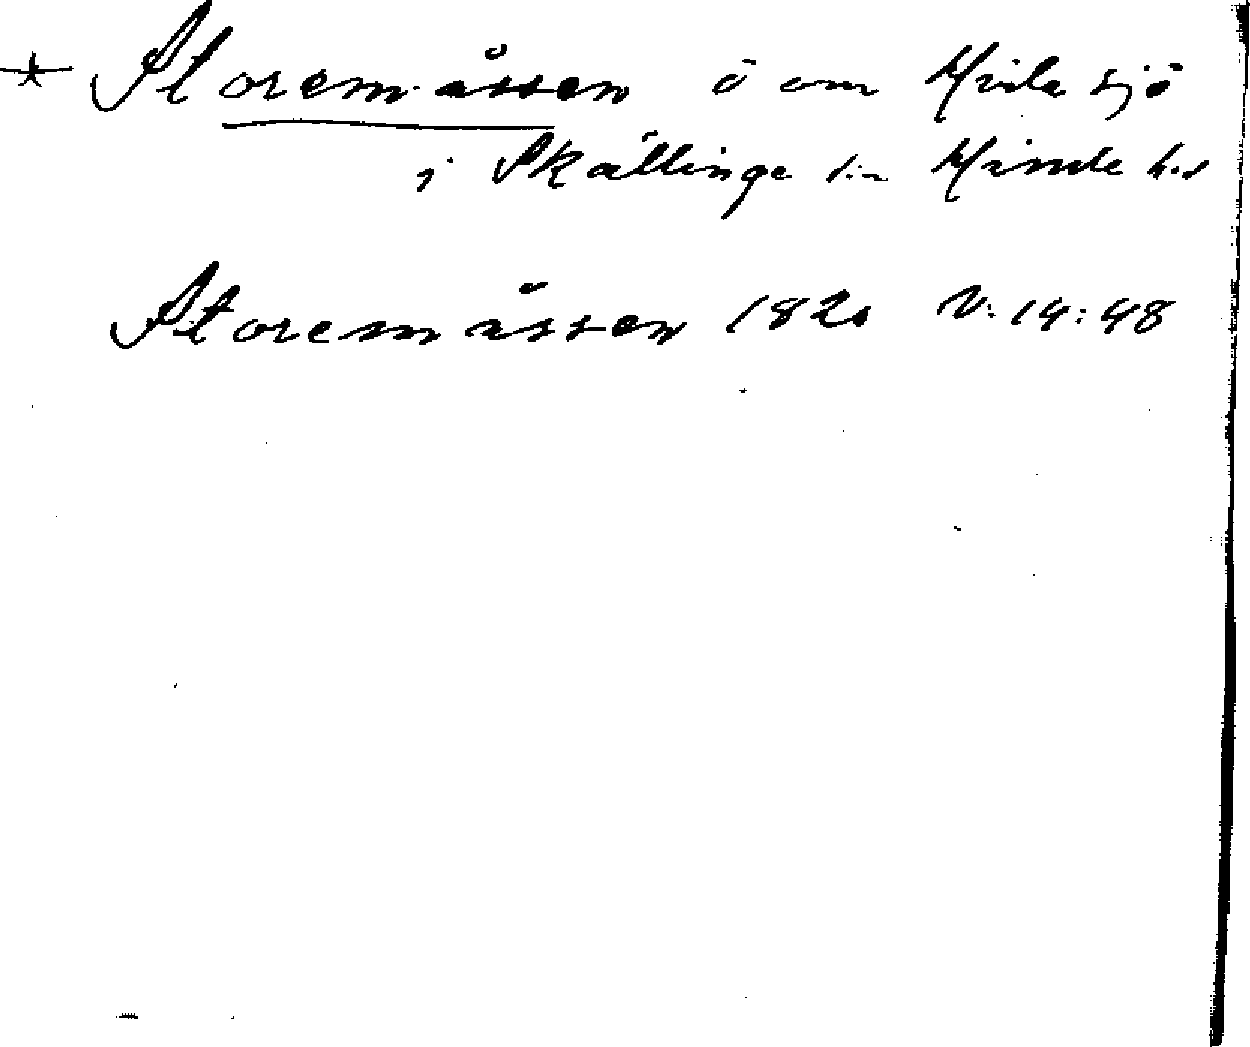 * Storemåssen ö om Hvila sjö
i Skällinge s:n Himle h:d
Storemåssen 1820 V: 14: 48